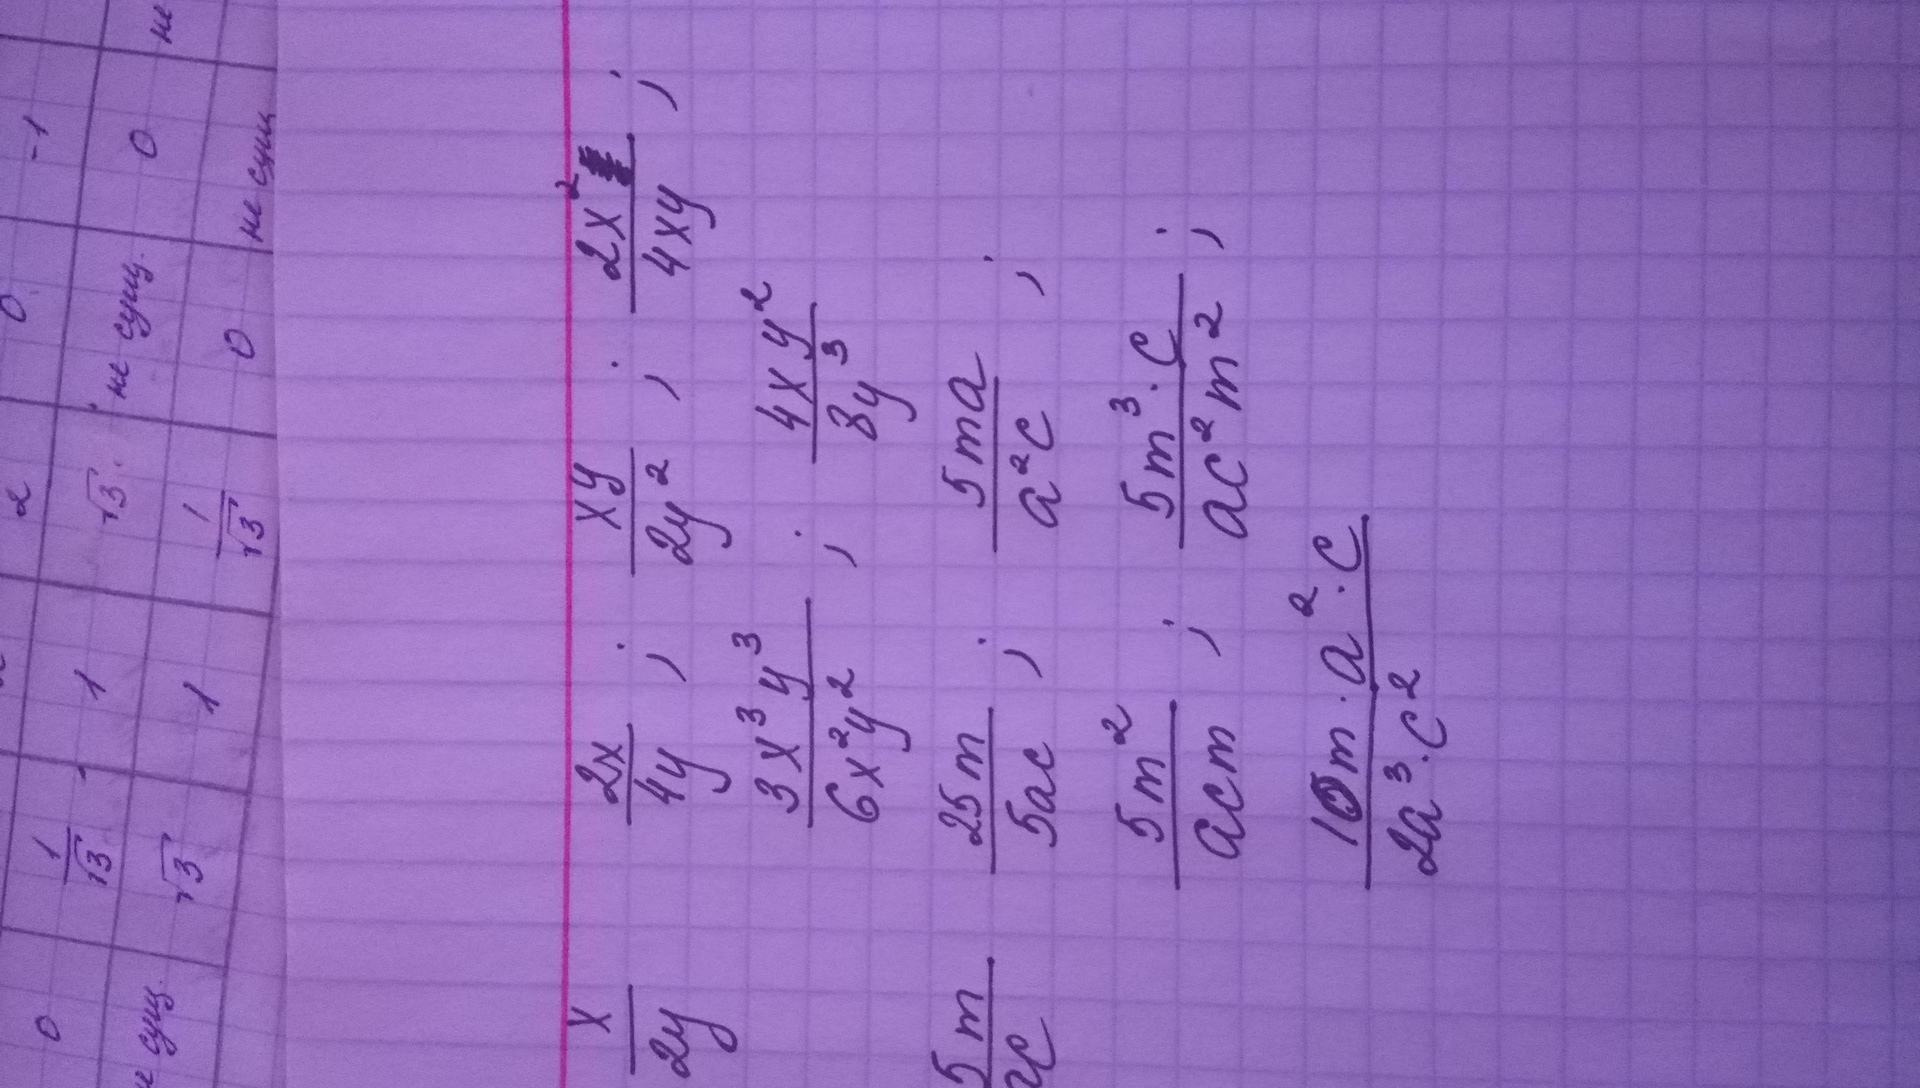 0 1/√3 1 2 0 -1
не сущ. √3 1 √3 не сущ. 0 не
1/√3 0 не сущ
x/2y 2x/4y ; xy/2y² ; 2x²/4xy ;
3x³y³/6x²y² ; 4xy²/8y³
5m/ac 25m/5ac ; 5ma/a²c ;
5m²/acm ; 5m³·c/ac²m² ;
10m·a²·c/2a³·c²